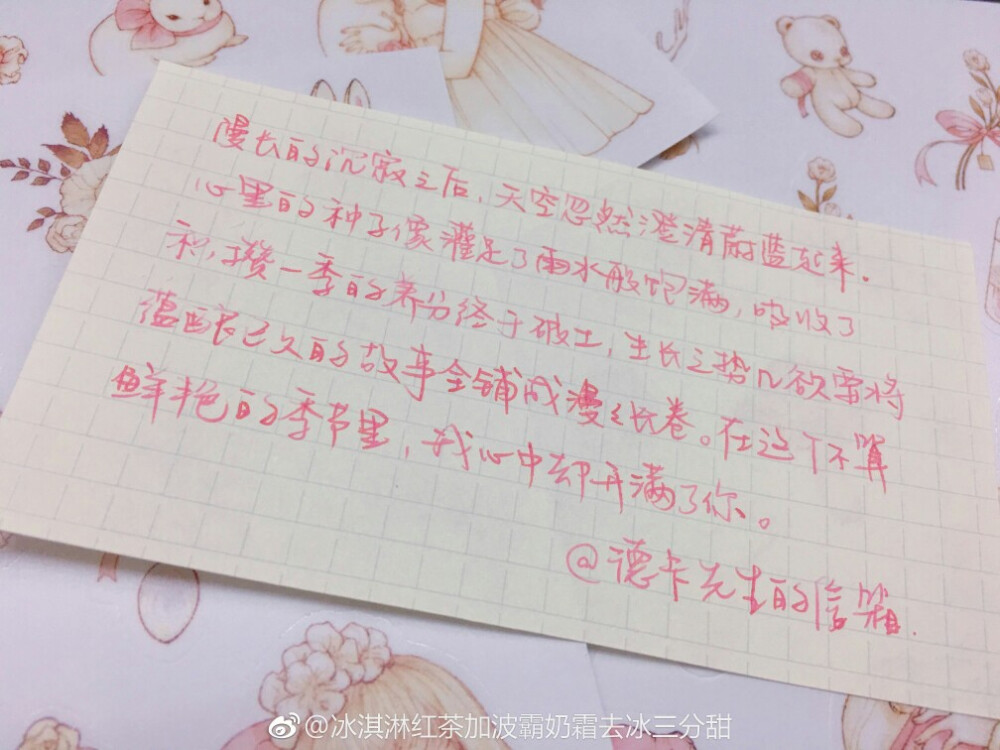 漫长的沉寂之后，天空忽然澄清蔚蓝起来．
心里的种子像灌足了雨水般饱满，吸收了
积攒一季的养分终于破土，生长之势几欲要将
蕴酿已久的故事全铺成漫之长卷。在这个不算
鲜艳的季节里，我心中却开满了你。
@德卡先生的信箱．
@冰淇淋红茶加波霸奶霜去冰三分甜